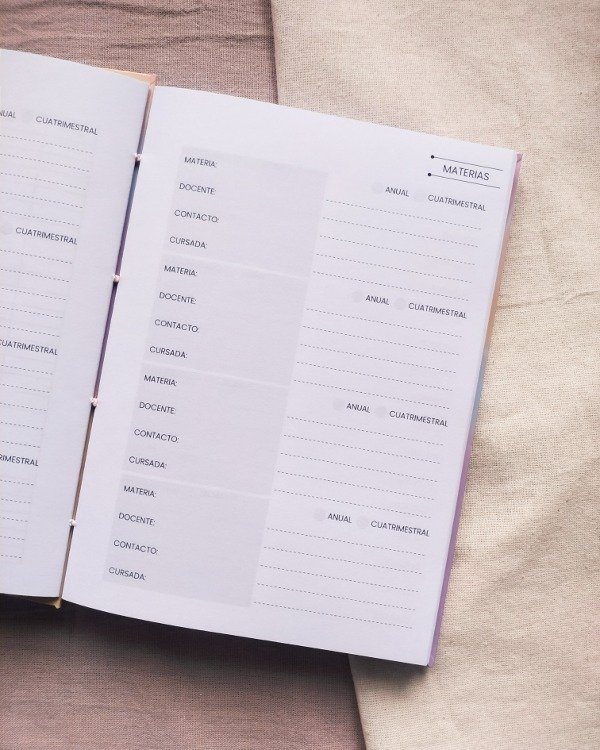 NUAL CUATRIMESTRAL
CUATRIMESTRAL
CUATRIMESTRAL
RIMESTRAL
MATERIAS
MATERIA: ANUAL CUATRIMESTRAL
DOCENTE:
CONTACTO:
CURSADA:
MATERIA: ANUAL CUATRIMESTRAL
DOCENTE:
CONTACTO:
CURSADA:
MATERIA: ANUAL CUATRIMESTRAL
DOCENTE:
CONTACTO:
CURSADA:
MATERIA: ANUAL CUATRIMESTRAL
DOCENTE:
CONTACTO:
CURSADA: